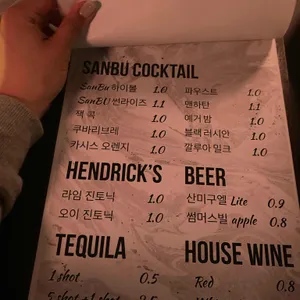 SANBU COCKTAIL
SanBu 하이볼 1.0
SanBU 썬라이즈 1.1
잭 콕 1.0
쿠바리브레 1.0
카시스 오렌지 1.0
파우스트 1.0
맨하탄 1.1
예거 밤 1.0
블랙 러시안 1.0
깔루아 밀크 1.0
HENDRICK'S
라임 진토닉 1.0
오이 진토닉 1.0
BEER
산미구엘 Lite 0.9
썸머스비 apple 0.8
TEQUILA
1 shot 0.5
5 shot +1 shot
HOUSE WINE
Red 0.8